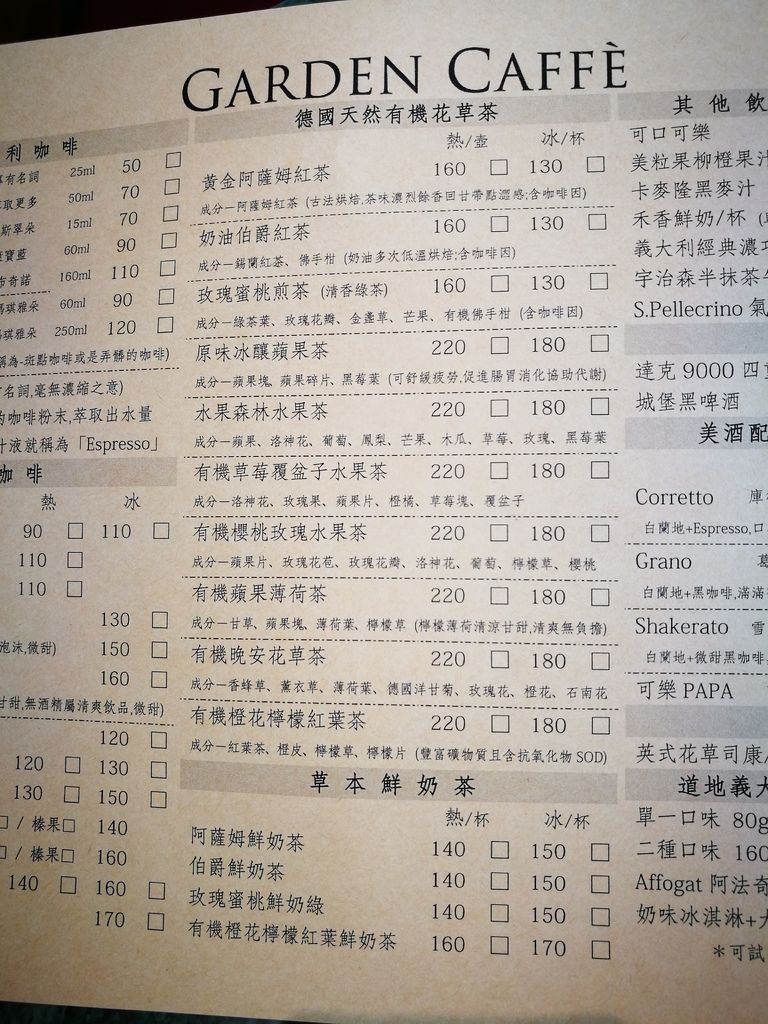 GARDEN CAFFÈ
利咖啡
有名詞 25ml 50 □
取更多 50ml 70 □
斯翠朵 15ml 70 □
寶藍 60ml 90 □
布奇諾 160ml 110 □
瑪琪雅朵 60ml 90 □
瑪琪雅朵 250ml 120 □
稱為-斑點咖啡或是弄髒的咖啡)
名詞,毫無濃縮之意)
的咖啡粉末,萃取出水量
汁液就稱為「Espresso」
咖啡
熱 冰
90 □ 110 □
110 □
110 □
130 □
泡沫,微甜) 150 □
160 □
甘甜,無酒精屬清爽飲品,微甜)
120 □
120 □ 130 □
130 □ 150 □
□ / 榛果□ 140
□ / 榛果□ 160
140 □ 160 □
170 □
德國天然有機花草茶
熱/壺 冰/杯
黃金阿薩姆紅茶 160 □ 130 □
成分—阿薩姆紅茶 (古法烘焙,茶味濃烈餘香回甘帶點澀感;含咖啡因)
奶油伯爵紅茶 160 □ 130 □
成分—錫蘭紅茶、佛手柑 (奶油多次低溫烘焙;含咖啡因)
玫瑰蜜桃煎茶 (清香綠茶) 160 □ 130 □
成分—綠茶葉、玫瑰花瓣、金盞草、芒果、有機佛手柑 (含咖啡因)
原味冰釀蘋果茶 220 □ 180 □
成分—蘋果塊、蘋果碎片、黑莓葉 (可舒緩疲勞,促進腸胃消化協助代謝)
水果森林水果茶 220 □ 180 □
成分—蘋果、洛神花、葡萄、鳳梨、芒果、木瓜、草莓、玫瑰、黑莓葉
有機草莓覆盆子水果茶 220 □ 180 □
成分—洛神花、玫瑰果、蘋果片、橙橘、草莓塊、覆盆子
有機櫻桃玫瑰水果茶 220 □ 180 □
成分—蘋果片、玫瑰花苞、玫瑰花瓣、洛神花、葡萄、檸檬草、櫻桃
有機蘋果薄荷茶 220 □ 180 □
成分—甘草、蘋果塊、薄荷葉、檸檬草 (檸檬薄荷清涼甘甜,清爽無負擔)
有機晚安花草茶 220 □ 180 □
成分—香蜂草、薰衣草、薄荷葉、德國洋甘菊、玫瑰花、橙花、石南花
有機橙花檸檬紅葉茶 220 □ 180 □
成分—紅葉茶、橙皮、檸檬草、檸檬片 (豐富礦物質且含抗氧化物 SOD)
草本鮮奶茶
熱/杯 冰/杯
阿薩姆鮮奶茶 140 □ 150 □
伯爵鮮奶茶 140 □ 150 □
玫瑰蜜桃鮮奶綠 140 □ 150 □
有機橙花檸檬紅葉鮮奶茶 160 □ 170 □
其他飲
可口可樂
美粒果柳橙果汁
卡麥隆黑麥汁
禾香鮮奶/杯
義大利經典濃
宇治森半抹茶
S.Pellecrino 氣
達克 9000 四
城堡黑啤酒
美酒配
Corretto
白蘭地+Espresso,口
Grano
白蘭地+黑咖啡,滿滿
Shakerato 雪
白蘭地+微甜黑咖啡
可樂 PAPA
英式花草司康
道地義大
單一口味 80g
二種口味 160
Affogat 阿法奇
奶味冰淇淋+
＊可試